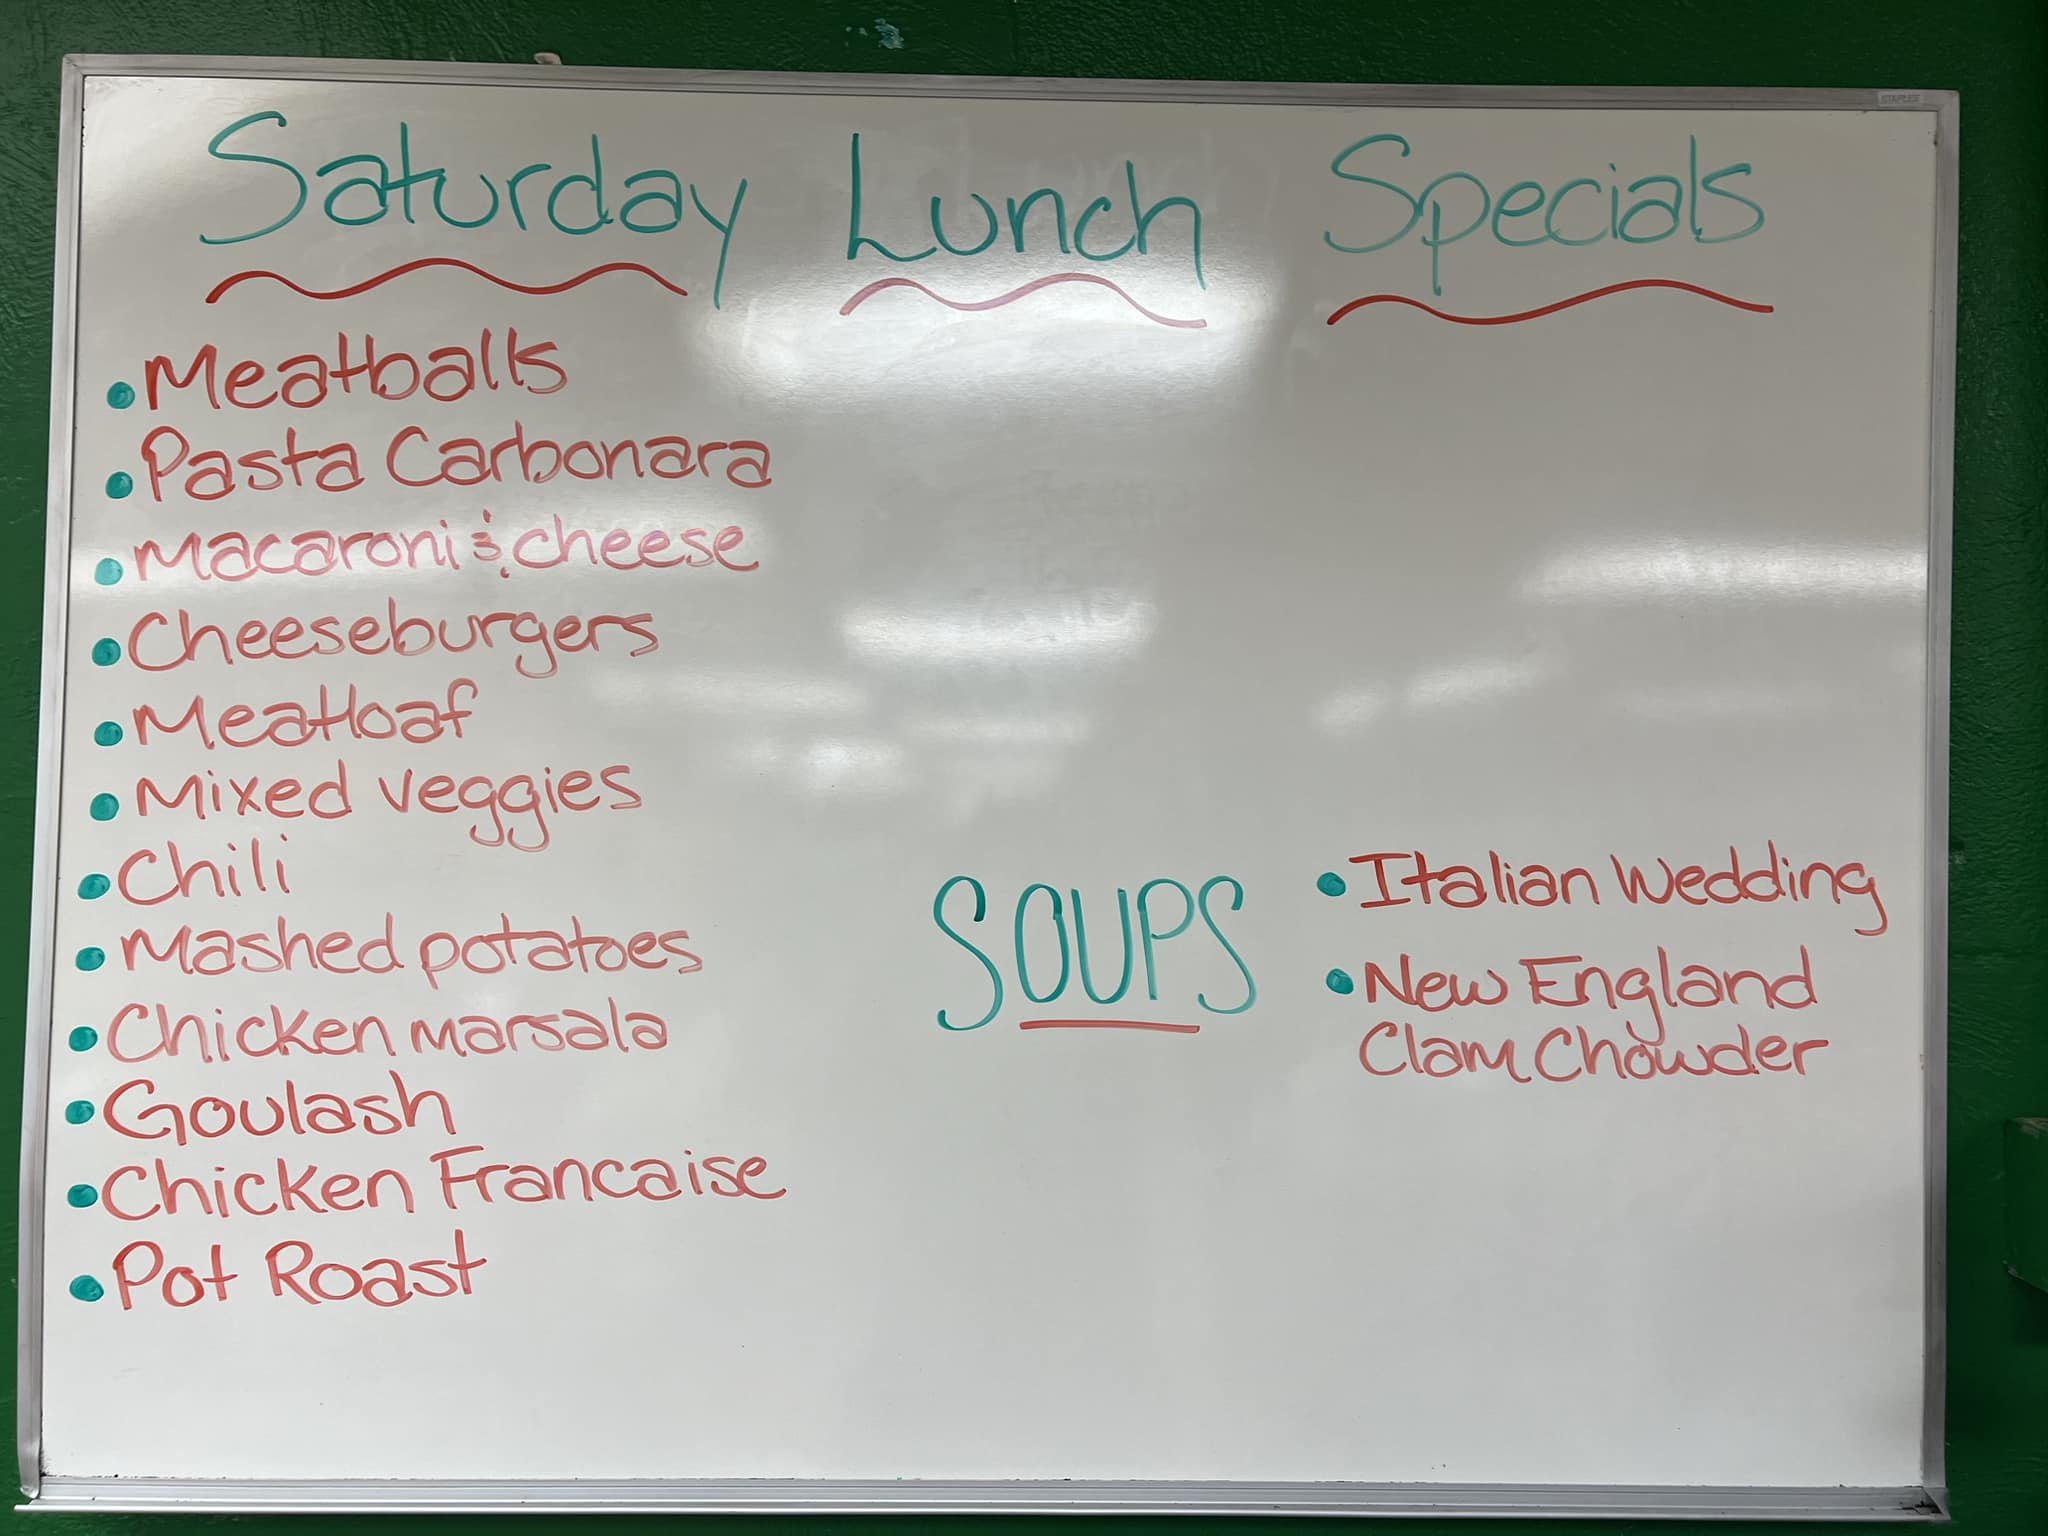 STAPLES
Saturday Lunch Specials
• Meatballs
• Pasta Carbonara
• Macaroni & cheese
• Cheeseburgers
• Meatloaf
• Mixed veggies
• Chili
• Mashed potatoes
• Chicken marsala
• Goulash
• Chicken Francaise
• Pot Roast
SOUPS
• Italian Wedding
• New England
Clam Chowder